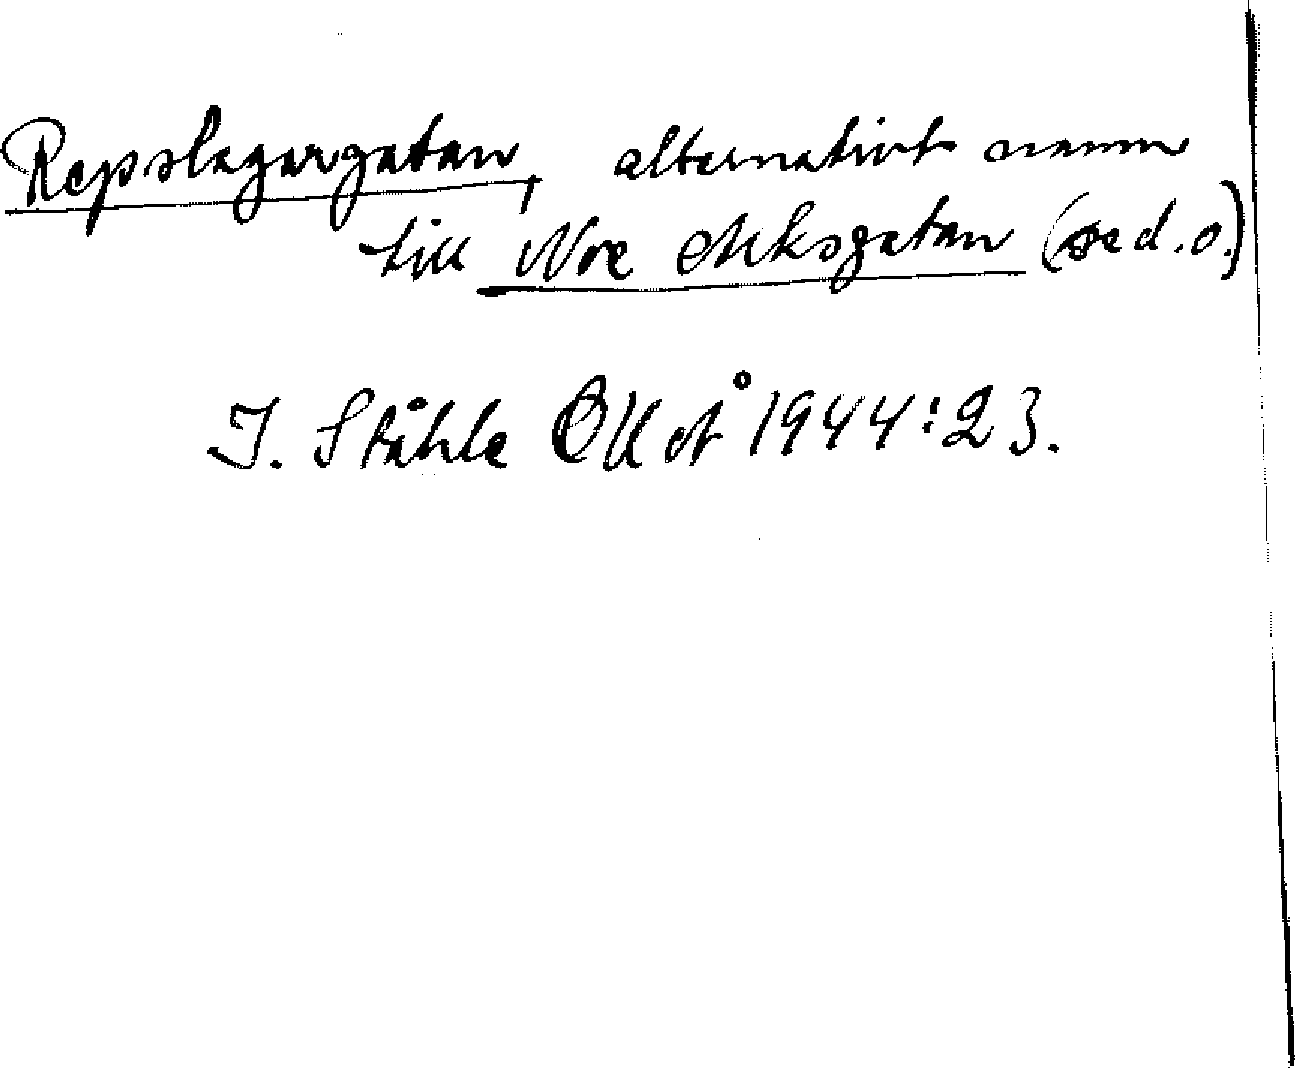 Repslagargatan, alternativt namn
till Nre Arksgatan (se d. o.)
I. Ståhle ÖKÅ 1944:23.